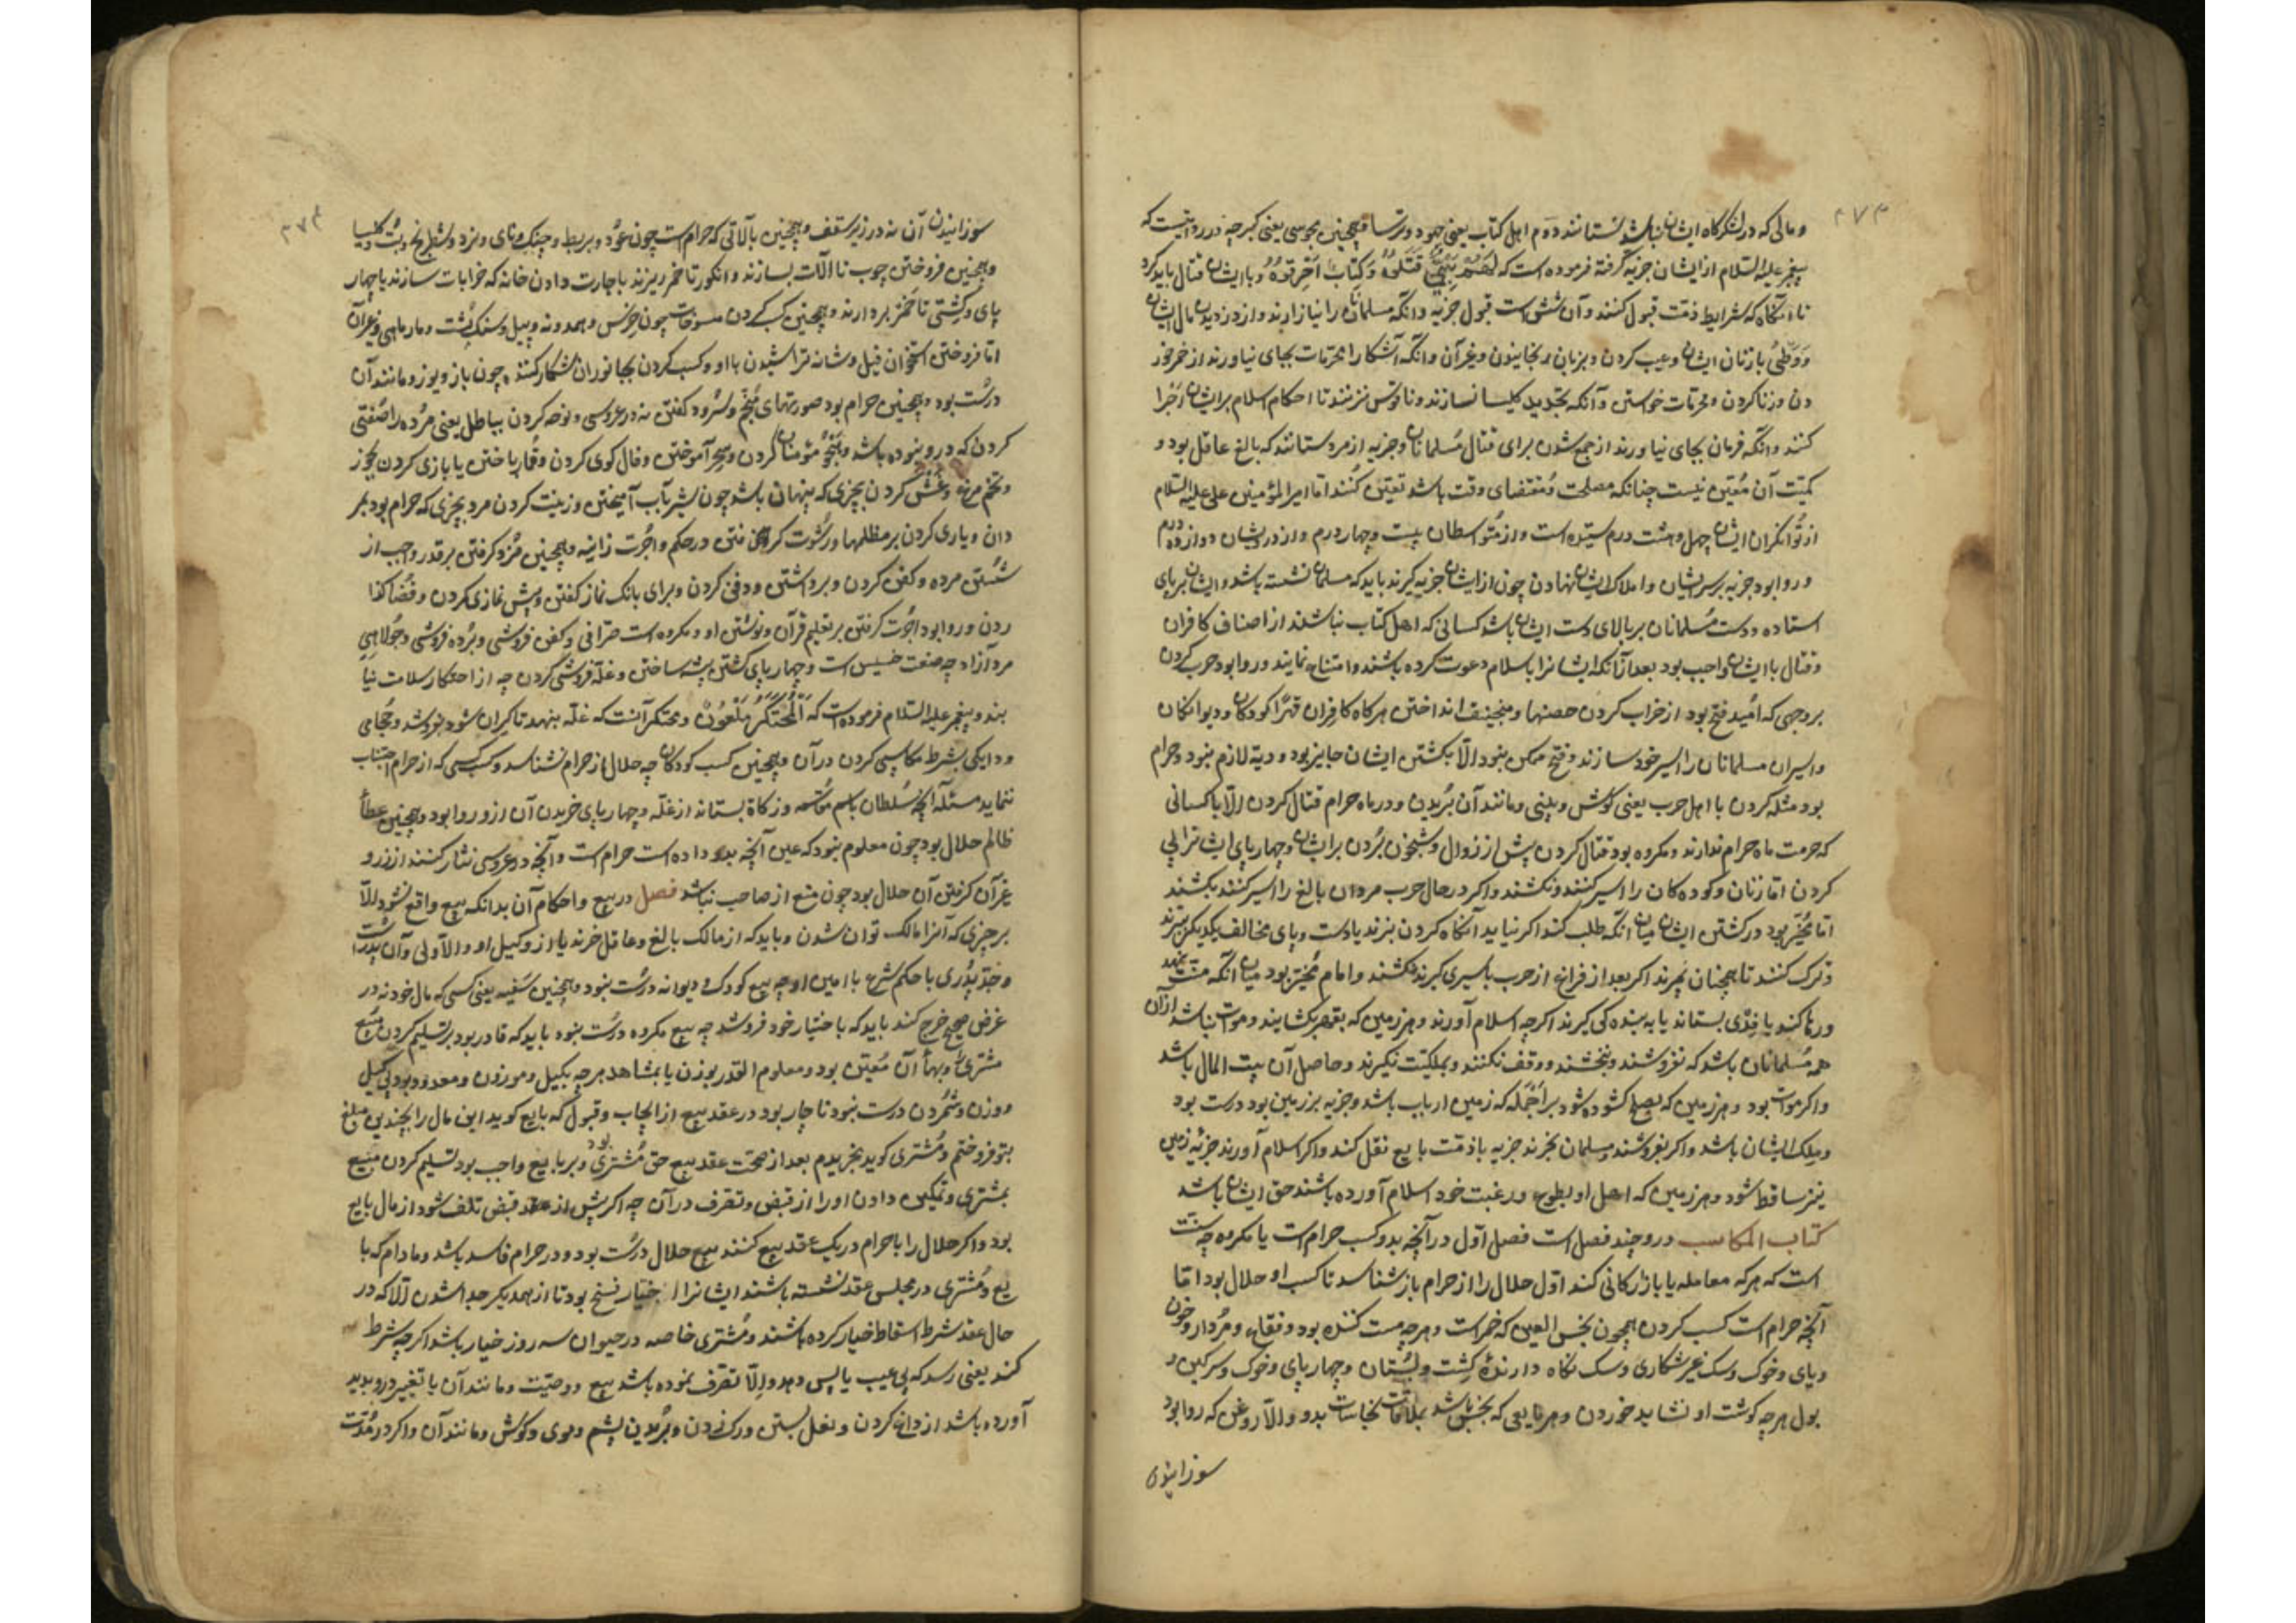 ۲۷۳
و مالی که در لشکرگاه ایشان نباشد نستانند دوم اهل کتاب یعنی جهود و ترسا و همچنین مجوسی یعنی گبر چه در روایتست که
پیغمبر علیه السلام از ایشان جزیه گرفته فرموده است که و با ایشان قتال باید کرد
تا آنگاه که شرایط ذمت قبول کنند و آن شش است قبول جزیه و آنکه مسلمانان را نیازارند و از دزدیدن مال ایشان
و وطئ با زنان ایشان و عیب کردن و بزبان رنجانیدن و غیر آن و آنکه آشکارا محرمات بجای نیاورند از خمر خور
دن و زنا کردن و محرمات خواستن و آنکه تجدید کلیسا نسازند و ناقوس نزنند تا احکام اسلام بر ایشان اجرا
کنند و آنکه فرمان بجای نیاورند از جمع شدن برای قتال مسلمانان و جزیه از مرد ستانند که بالغ عاقل بود و
کمیت آن معین نیست چنانکه مصلحت و مقتضای وقت باشد تعیین کنند اما امیر المؤمنین علی علیه السلام
از توانگران ایشان چهل و هشت درم ستده است و از متوسطان بیست و چهار درم و از درویشان دوازده درم
و روا بود جزیه بر سر ایشان و املاک ایشان نهادن چون از ایشان جزیه گیرند باید که مسلمان نشسته باشد و ایشان بر پای
استاده و دست مسلمانان بر بالای دست ایشان باشد کسانی که اهل کتاب نباشند از اصناف کافران
و قتال با ایشان واجب بود بعد از آنکه ایشانرا باسلام دعوت کرده باشند و امتناع نمایند و روا بود حرب کردن
بر وجهی که امید فتح بود از خراب کردن حصنها و منجنیق انداختن هرگاه کافران قهرا کودکان و دیوانگان
و اسیران مسلمانان را اسیر خود سازند و فتح ممکن نبود الا بکشتن ایشان جایز بود و دیة لازم نبود و حرام
بود مثله کردن با اهل حرب یعنی گوش و بینی و مانند آن بریدن و در ماه حرام قتال کردن الا با کسانی
که حرمت ماه حرام ندارند و مکروه بود قتال کردن پیش از زوال و شبخون بردن بر ایشان و چهارپای ایشانرا پی
کردن اما زنان و کوده کان را اسیر کنند و نکشند و اگر در حال حرب مردان بالغ را اسیر کنند بکشند
اما مخیر بود در کشتن ایشان میان آنکه طلب کند اگر نیابد آنگاه گردن بزند یا دست و پای مخالف یکدیگر ببرند
و ترک کنند تا همچنان بمیرند اگر بعد از فراغ از حرب باسیری گیرند نکشند و امام مخیر بود میان آنکه منت نهد
و رها کند یا فدی بستاند یا به بنده کی گیرند اگرچه اسلام آورند و هر زمین که بقهر بگشایند و موات نباشد از آن
همه مسلمانان باشد که نفروشند و نبخشند و وقف نکنند و بملکیت نگیرند و حاصل آن بیت المال باشد
و اگر موات بود و هر زمین که بصلح گشوده شود بر آنجمله که زمین ارباب باشد و جزیه بر زمین بود درست بود
و ملک ایشان باشد و اگر بفروشند و مسلمان بخرند جزیه با ذمت بایع نقل کند و اگر اسلام آورند جزیه زمین
نیز ساقط شود و هر زمین که اهل او بطوع و رغبت خود اسلام آورده باشند حق ایشان باشد
کتاب المکاسب درو چند فصل است فصل اول در آنچه بدو کسب حرام است یا مکروه چه سنت
است که هر که معامله یا بازارکانی کند اول حلال را از حرام بازشناسد تا کسب او حلال بود اما
آنچه حرام است کسب کردن همچون نجس العین که خمر است و هرچه مست کننده بود و فقاع و مردار و خون
و پای و خوک و سک غیر شکاری و سک نگاه دارنده کشت و بستان و چهارپای و خوک و سرکین و
بول هرچه گوشت او نشاید خوردن و هر مایعی که نجس باشد بملاقات نجاسات بدو و الا روغن که روا بود
سوزانیدن
۲۷۴
سوزانیدن آن نه در زیر سقف و همچنین بآلاتی که حرام است چون عود و بربط و چنک و نای و نرد و شطرنج و بت و کلیسا
و همچنین فروختن چوب تا آلات بسازند و انکور تا خمر ریزند باجارت دادن خانه که خرابات سازند یا چهار
پای و کشتی تا خمر بردارند و همچنین کسب کردن مسوخات چون خرس و همدونه و پیل و سنک پشت و مارماهی و غیر آن
اما فروختن استخوان فیل و شانه تراشیدن با او و کسب کردن بجانوران شکار کننده چون باز و یوز و مانند آن
درست بود و همچنین حرام بود صورتهای و سرود گفتن نه در عروسی و نوحه کردن بباطل یعنی مرده را صفتی
کردن که درو نبوده باشد و هجو مؤمنان کردن و سحر آموختن و فال کوی کردن و قمار باختن یا بازی کردن بجوز
و تخم مرغ و غش کردن بچیزی که پنهان باشد چون بشیر آب آمیختن و زینت کردن مرد بچیزی که حرام بود بر
دان و یاری کردن بر مظلمها و رشوت گرفتن در حکم و اجرت زانیه و همچنین مزد گرفتن بر قدر واجب از
شستن مرده و کفن کردن و برداشتن و دفن کردن و برای بانک نماز گفتن و پیش نمازی کردن و قضا گذا
ردن و روا بود اجرت گرفتن بر تعلیم قرآن و نوشتن او و مکروه است صرافی و کفن فروشی و برده فروشی و جولاهی
مرد آزاد چه صنعت خسیس است و چهارپای کشتن پیشه ساختن و غله فروشی کردن چه از احتکار سلامت نیا
بند و پیغمبر علیه السلام فرموده است که المحتکر ملعون و محتکر آنست که غله بنهد تا گران شود بفروشد و حجامی
و دایگی بشرط مکاسبی کردن در آن و همچنین کسب کودکان چه حلال از حرام نشناسد و کسب کسی که از حرام اجتناب
ننماید مسئله آنچه سلطان باسم مقاسمه و زکاة بستاند از غله و چهارپای خریدن آن ازو روا بود و همچنین عطاء
ظالم حلال بود چون معلوم نبود که عین آنچه بدو داده است حرام است و آنچه در عروسی نثار کنند از زر و
غیر آن گرفتن آن حلال بود چون منع از صاحب نباشد فصل در بیع و احکام آن بدانکه بیع واقع نشود الا
بر چیزی که آنرا مالک توان شدن و باید که از مالک بالغ و عاقل خرند یا از وکیل او و الا ولی و آن پدر است
و جد پدری با حکم شرع با امین او چه بیع کودک و دیوانه درست نبود و همچنین سفیه یعنی کسی که مال خود نه در
غرض صحیح خرج کند باید که باختیار خود فروشد چه بیع مکروه درست نبود باید که قادر بود بر تسلیم کردن مبیع
مشتری و بهاء آن معین بود و معلوم القدر بوزن یا بمشاهد هرچه بکیل و موزون و معدود بود بی کیل
و وزن و شمردن درست نبود ناچار بود در عقد بیع از ایجاب و قبول که بایع کوید این مال را بچندین مبلغ
بتو فروختم و مشتری کوید بخریدم بعد از صحت عقد بیع حق مشتری بود و بر بایع واجب بود تسلیم کردن مبیع
بمشتری و تمکین دادن او را از قبض و تصرف در آن چه اگر پیش از قبض تلف شود از مال بایع
بود و اگر حلال را با حرام در یک عقد بیع کنند بیع حلال درست بود و در حرام فاسد باشد و مادام که با
یع و مشتری در مجلس عقد نشسته باشند ایشانرا اختیار فسخ بود تا از همدیگر جدا شدن الا که در
حال عقد شرط اسقاط خیار کرده باشند و مشتری خاصه در حیوان سه روز خیار باشد اگرچه شرط
کند یعنی رسد که بی عیب باپس دهد و الا تصرف نموده باشد ببیع و وصیت و مانند آن یا تغییر درو پدید
آورده باشد از داغ کردن و نعل بستن و رک زدن و بریدن پشم و موی و گوش و مانند آن و اگر در مدت